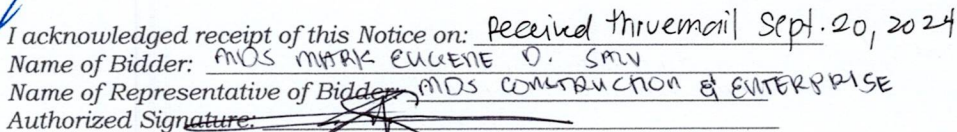 I acknowledged receipt of this Notice on: Received thru email Sept. 20, 2024
Name of Bidder: MDS MARK EUGENE D.
Name of Representative of Bidder: MDS CONSTRUCTION & ENTERPRISE
Authorized Signature: